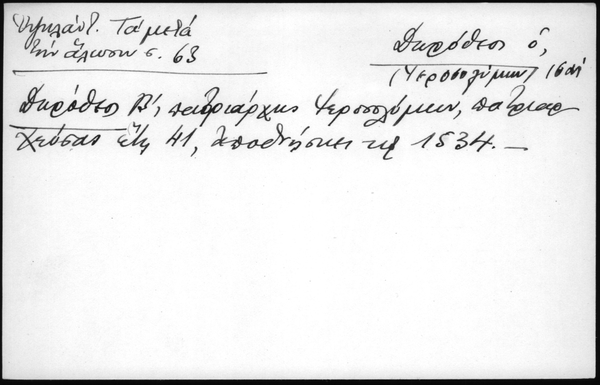 Ὑψηλάντ. Τά μετά
τήν ἅλωσιν σ. 63
Δωρόθεος ὁ,
(Ἱεροσολύμων)
Δωρόθεος Β', πατριάρχης Ἱεροσολύμων, πατριαρ
χεύσας ἔτη 41, ἀποθνήσκει τῷ 1534. —